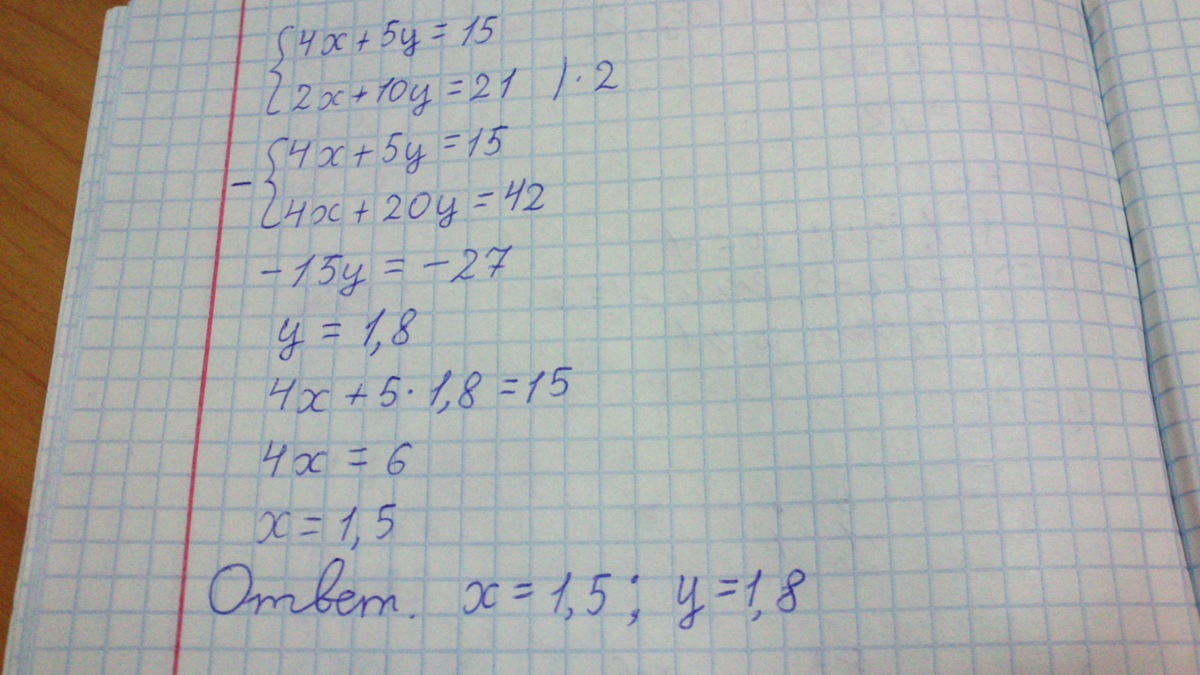 4x + 5y = 15
2x + 10y = 21 | · 2
4x + 5y = 15
− 4x + 20y = 42
-15y = -27
y = 1,8
4x + 5 · 1,8 = 15
4x = 6
x = 1,5
Ответ. x = 1,5; y = 1,8